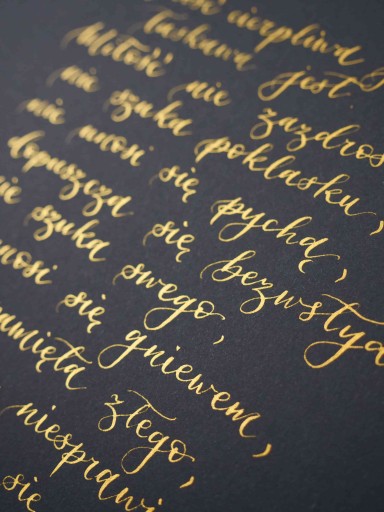 cierpliwa
łaskawa jest
Miłość nie zazdroś
nie szuka poklasku,
nie unosi się pychą,
dopuszcza się bezwstyd
nie szuka swego,
unosi się gniewem,
pamięta złego,
niesprawi
się